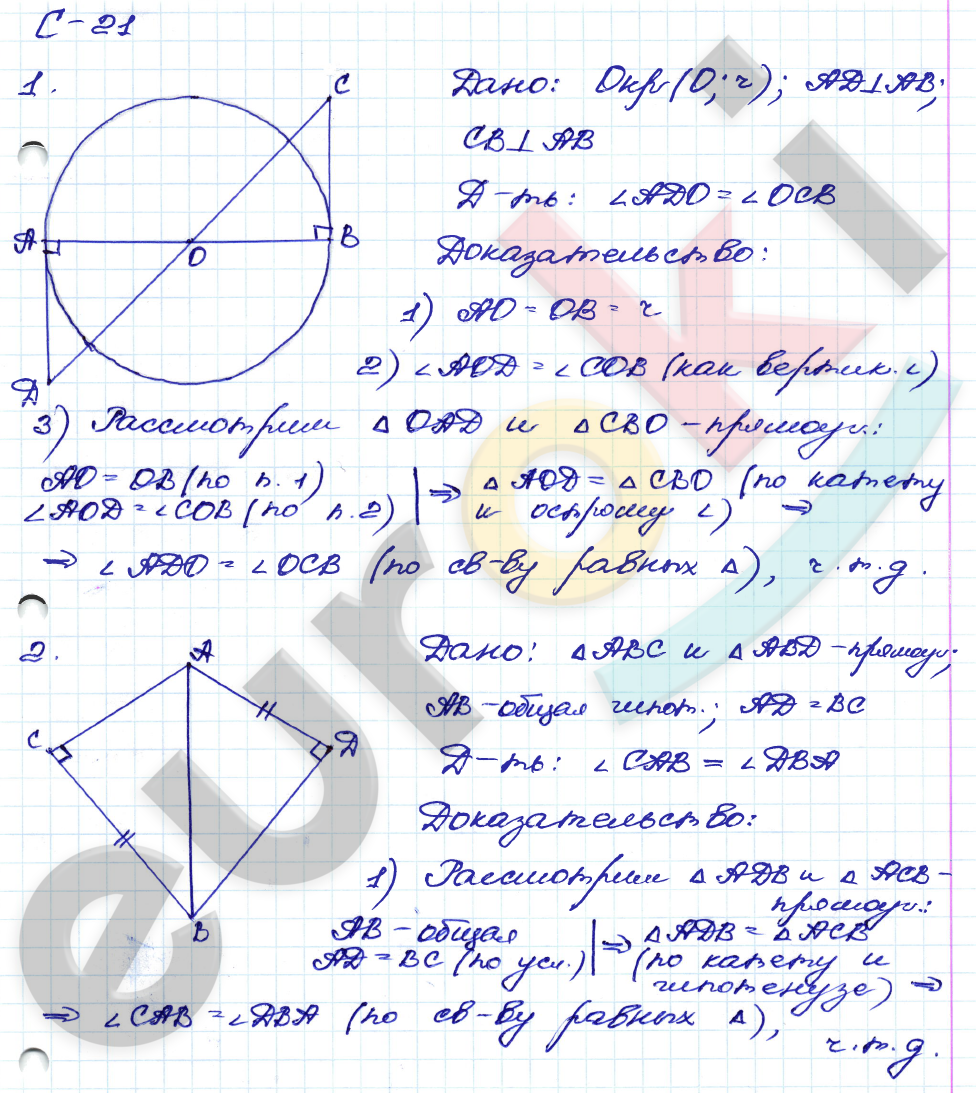 С-21
1.
C
A
O
B
D
Дано: Окр(O; r); AD⊥AB;
CB⊥AB
Д-ть: ∠ADO = ∠OCB
Доказательство:
1) AO = OB = r
2) ∠AOD = ∠COB (как вертик. ∠)
3) Рассмотрим △OAD и △CBO - прямоуг.:
AO = OB (по п. 1) | ⇒ △AOD = △CBO (по катету
∠AOD = ∠COB (по п. 2) | и острому ∠) ⇒
⇒ ∠ADO = ∠OCB (по св-ву равных △), ч.т.д.
2.
A
C
D
B
Дано: △ABC и △ABD - прямоуг.;
AB - общая гипот.; AD = BC
Д-ть: ∠CAB = ∠DBA
Доказательство:
1) Рассмотрим △ADB и △ACB -
прямоуг.:
AB - общая | ⇒ △ADB = △ACB
AD = BC (по усл.) | (по катету и
гипотенузе) ⇒
⇒ ∠CAB = ∠DBA (по св-ву равных △),
ч.т.д.
euroki